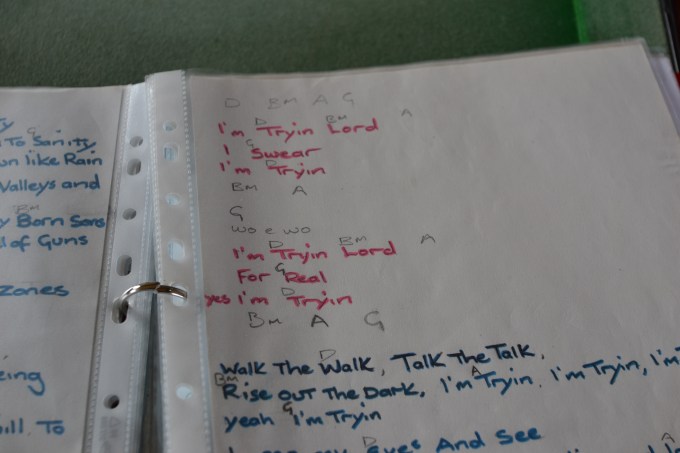 To Sanity
like Rain
Valleys and
Bm
Born Sons
of Guns
zones
To
D Bm A G
D Bm A
I'm Tryin Lord
G
I Swear
D
I'm Tryin
Bm A
G
wo e wo
D Bm A
I'm Tryin Lord
G
For Real
D
yes I'm Tryin
Bm A G
D
Walk The Walk, Talk The Talk,
Bm A
Rise out The Dark, I'm Tryin, I'm Tryin, I'm
G
yeah I'm Tryin
D A
my Eyes And See